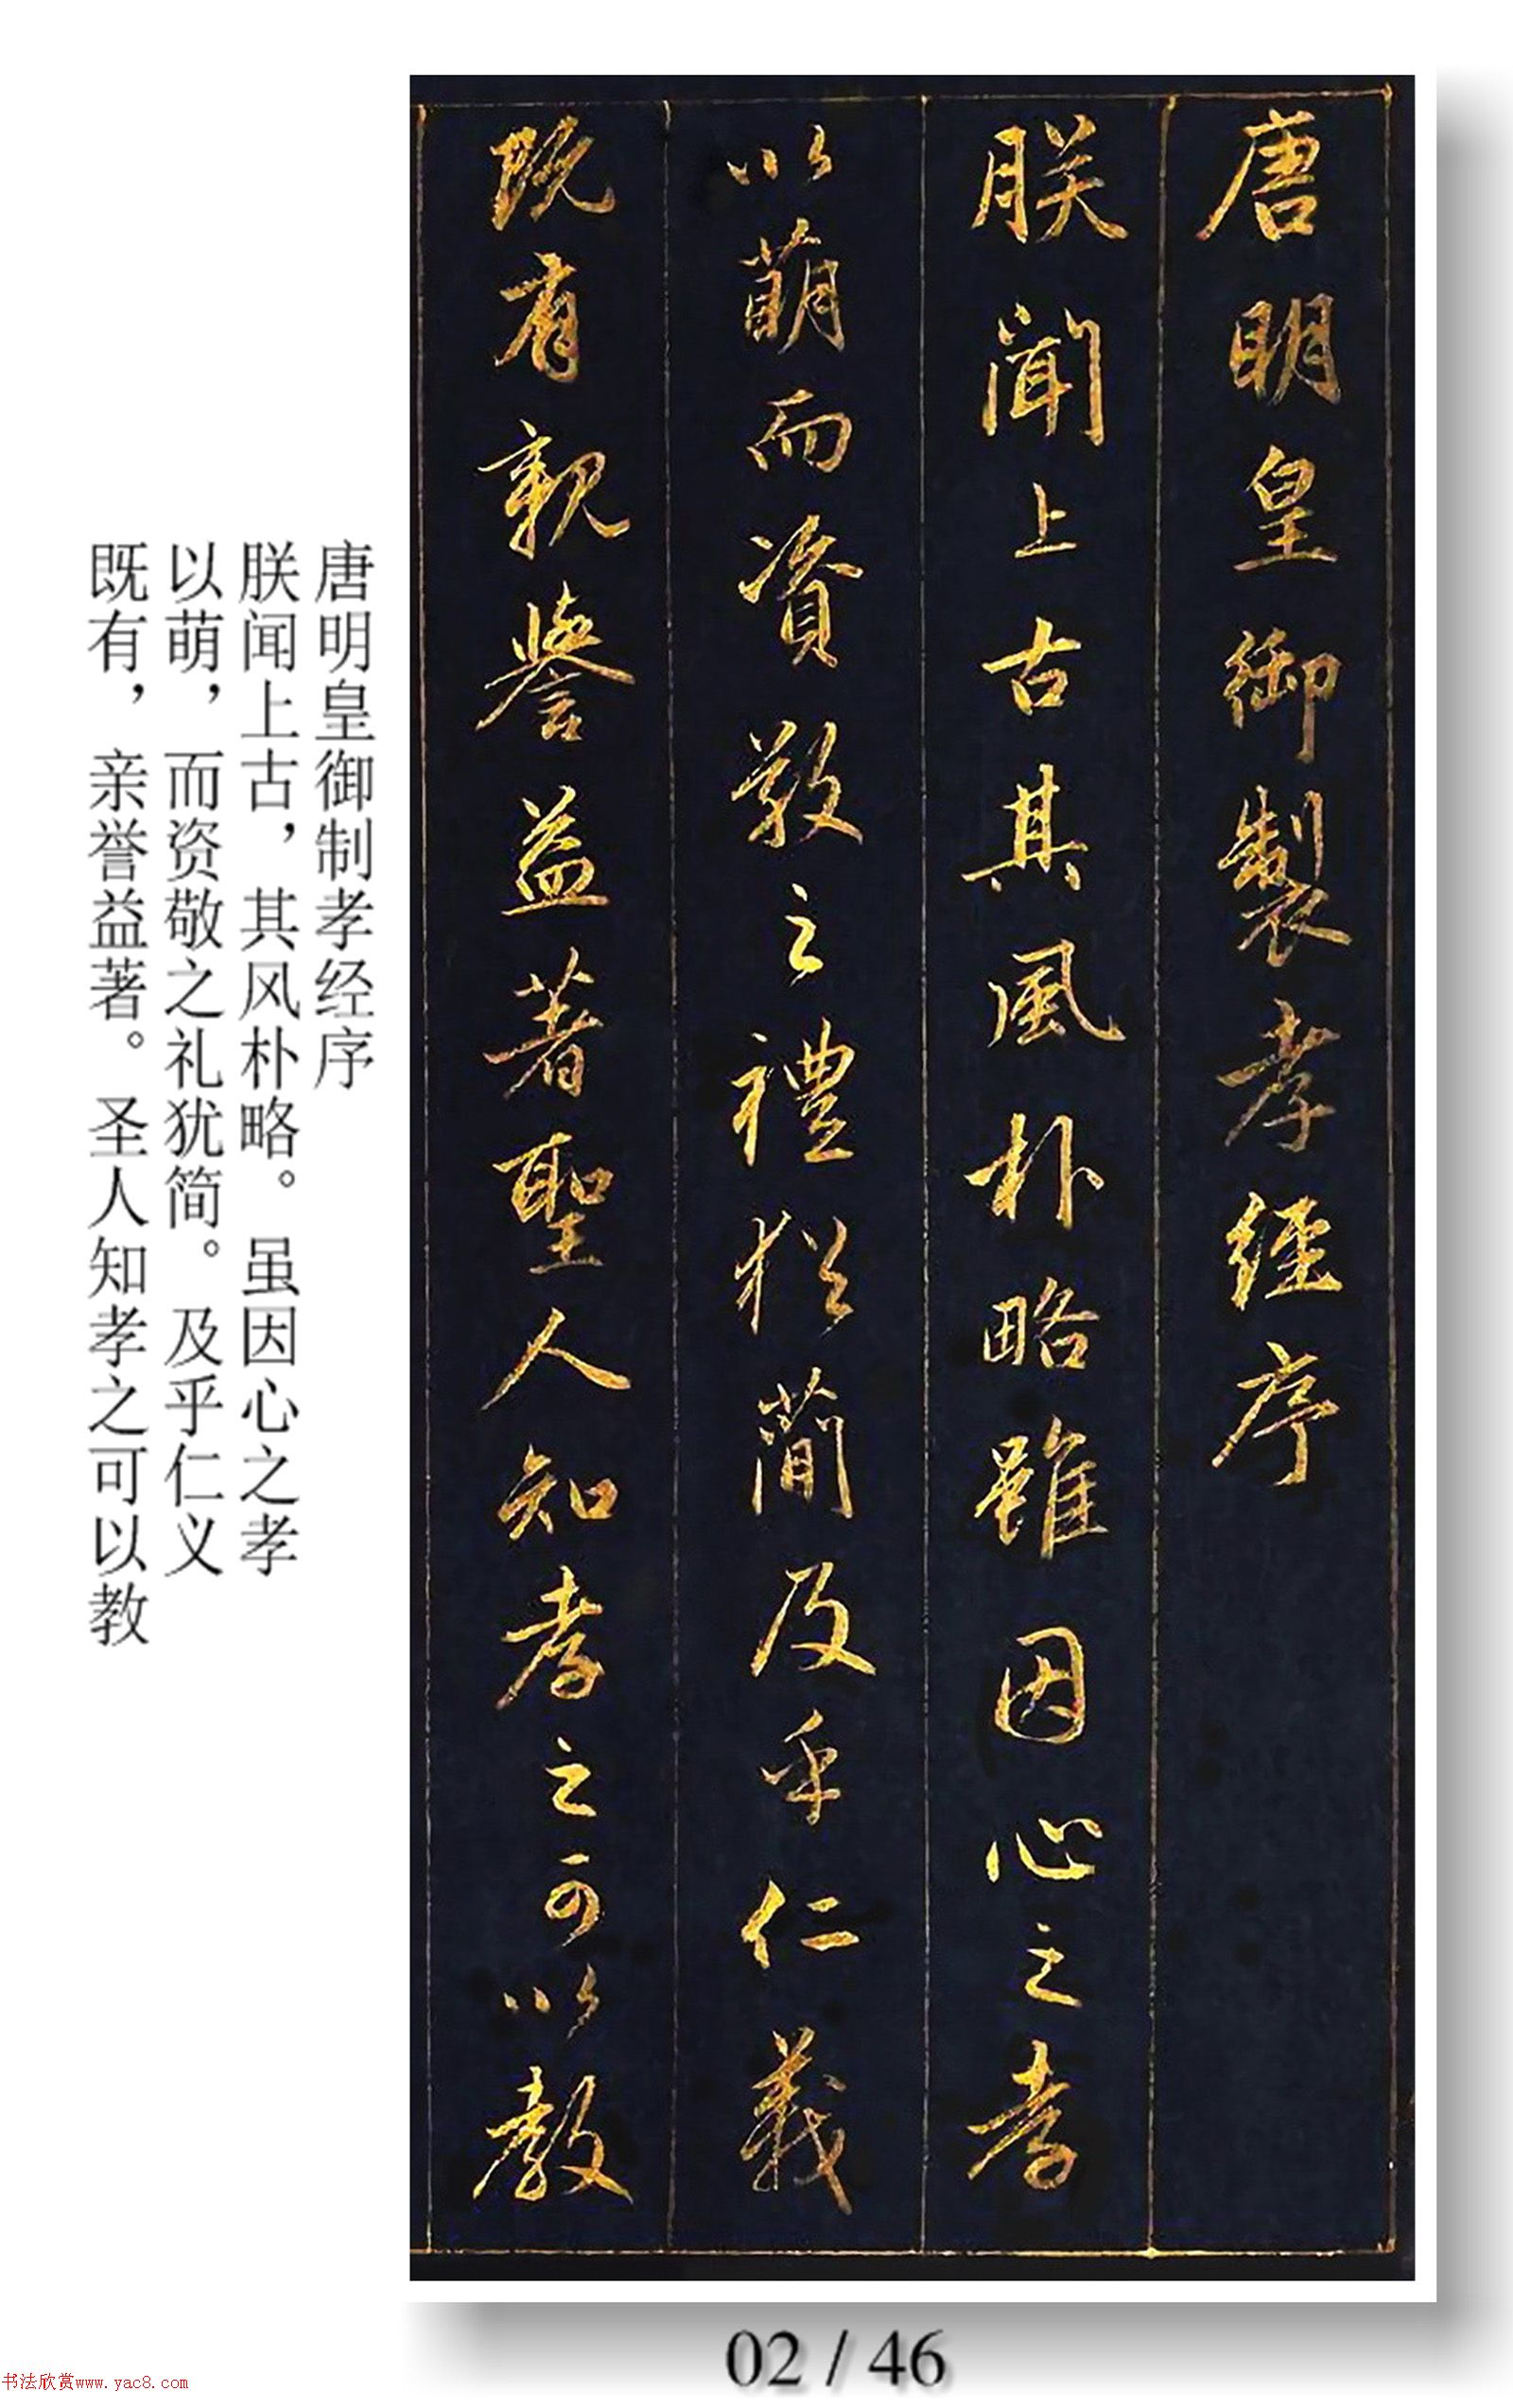 唐明皇御製孝經序
朕聞上古其風朴略雖因心之孝
以萌而資敬之禮猶簡及乎仁義
既有親譽益著聖人知孝之可以教
唐明皇御制孝经序
朕闻上古，其风朴略。虽因心之孝
以萌，而资敬之礼犹简。及乎仁义
既有，亲誉益著。圣人知孝之可以教
02 / 46
书法欣赏www.yac8.com